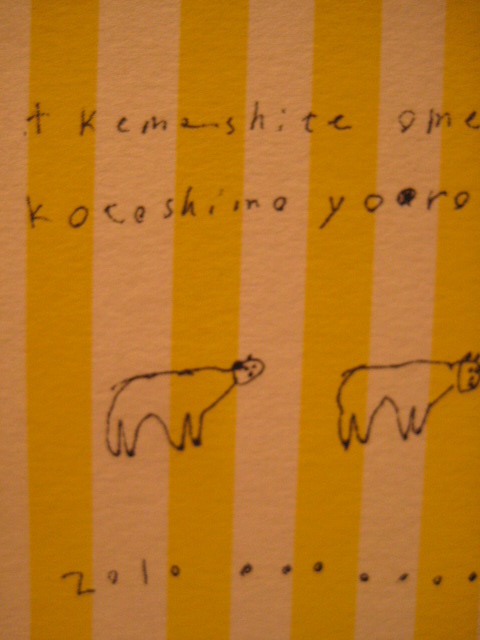 t kemashite ome
kotoshimo yoro
2010